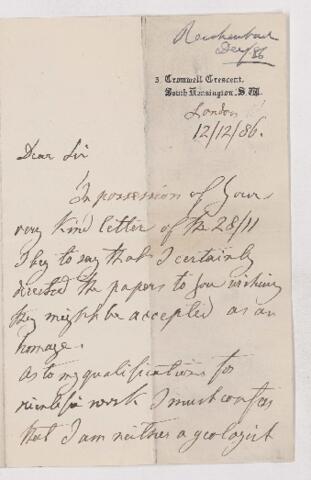 Reichenbach
Dec/86
3, Cromwell Crescent,
South Kensington, S.W.
London
12/12/86.
Dear Sir
In possession of your
very kind letter of the 28/11
I beg to say that I certainly
directed the papers to you wishing
they might be accepted as an
homage.
As to my qualifications for
scientific work I must confess
that I am neither a geologist